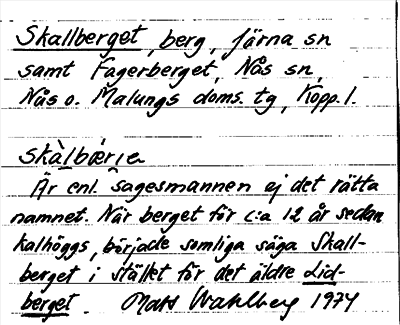 Skallberget, berg, Järna sn
samt Fagerberget, Nås sn,
Nås o. Malungs doms. tg, Kopp. l.
skàlbæ̀rjə
Är enl. sagesmannen ej det rätta
namnet. När berget för c:a 12 år sedan
kalhöggs, började somliga säga Skall-
berget i stället för det äldre Lid-
berget. Mats Wahlberg 1974